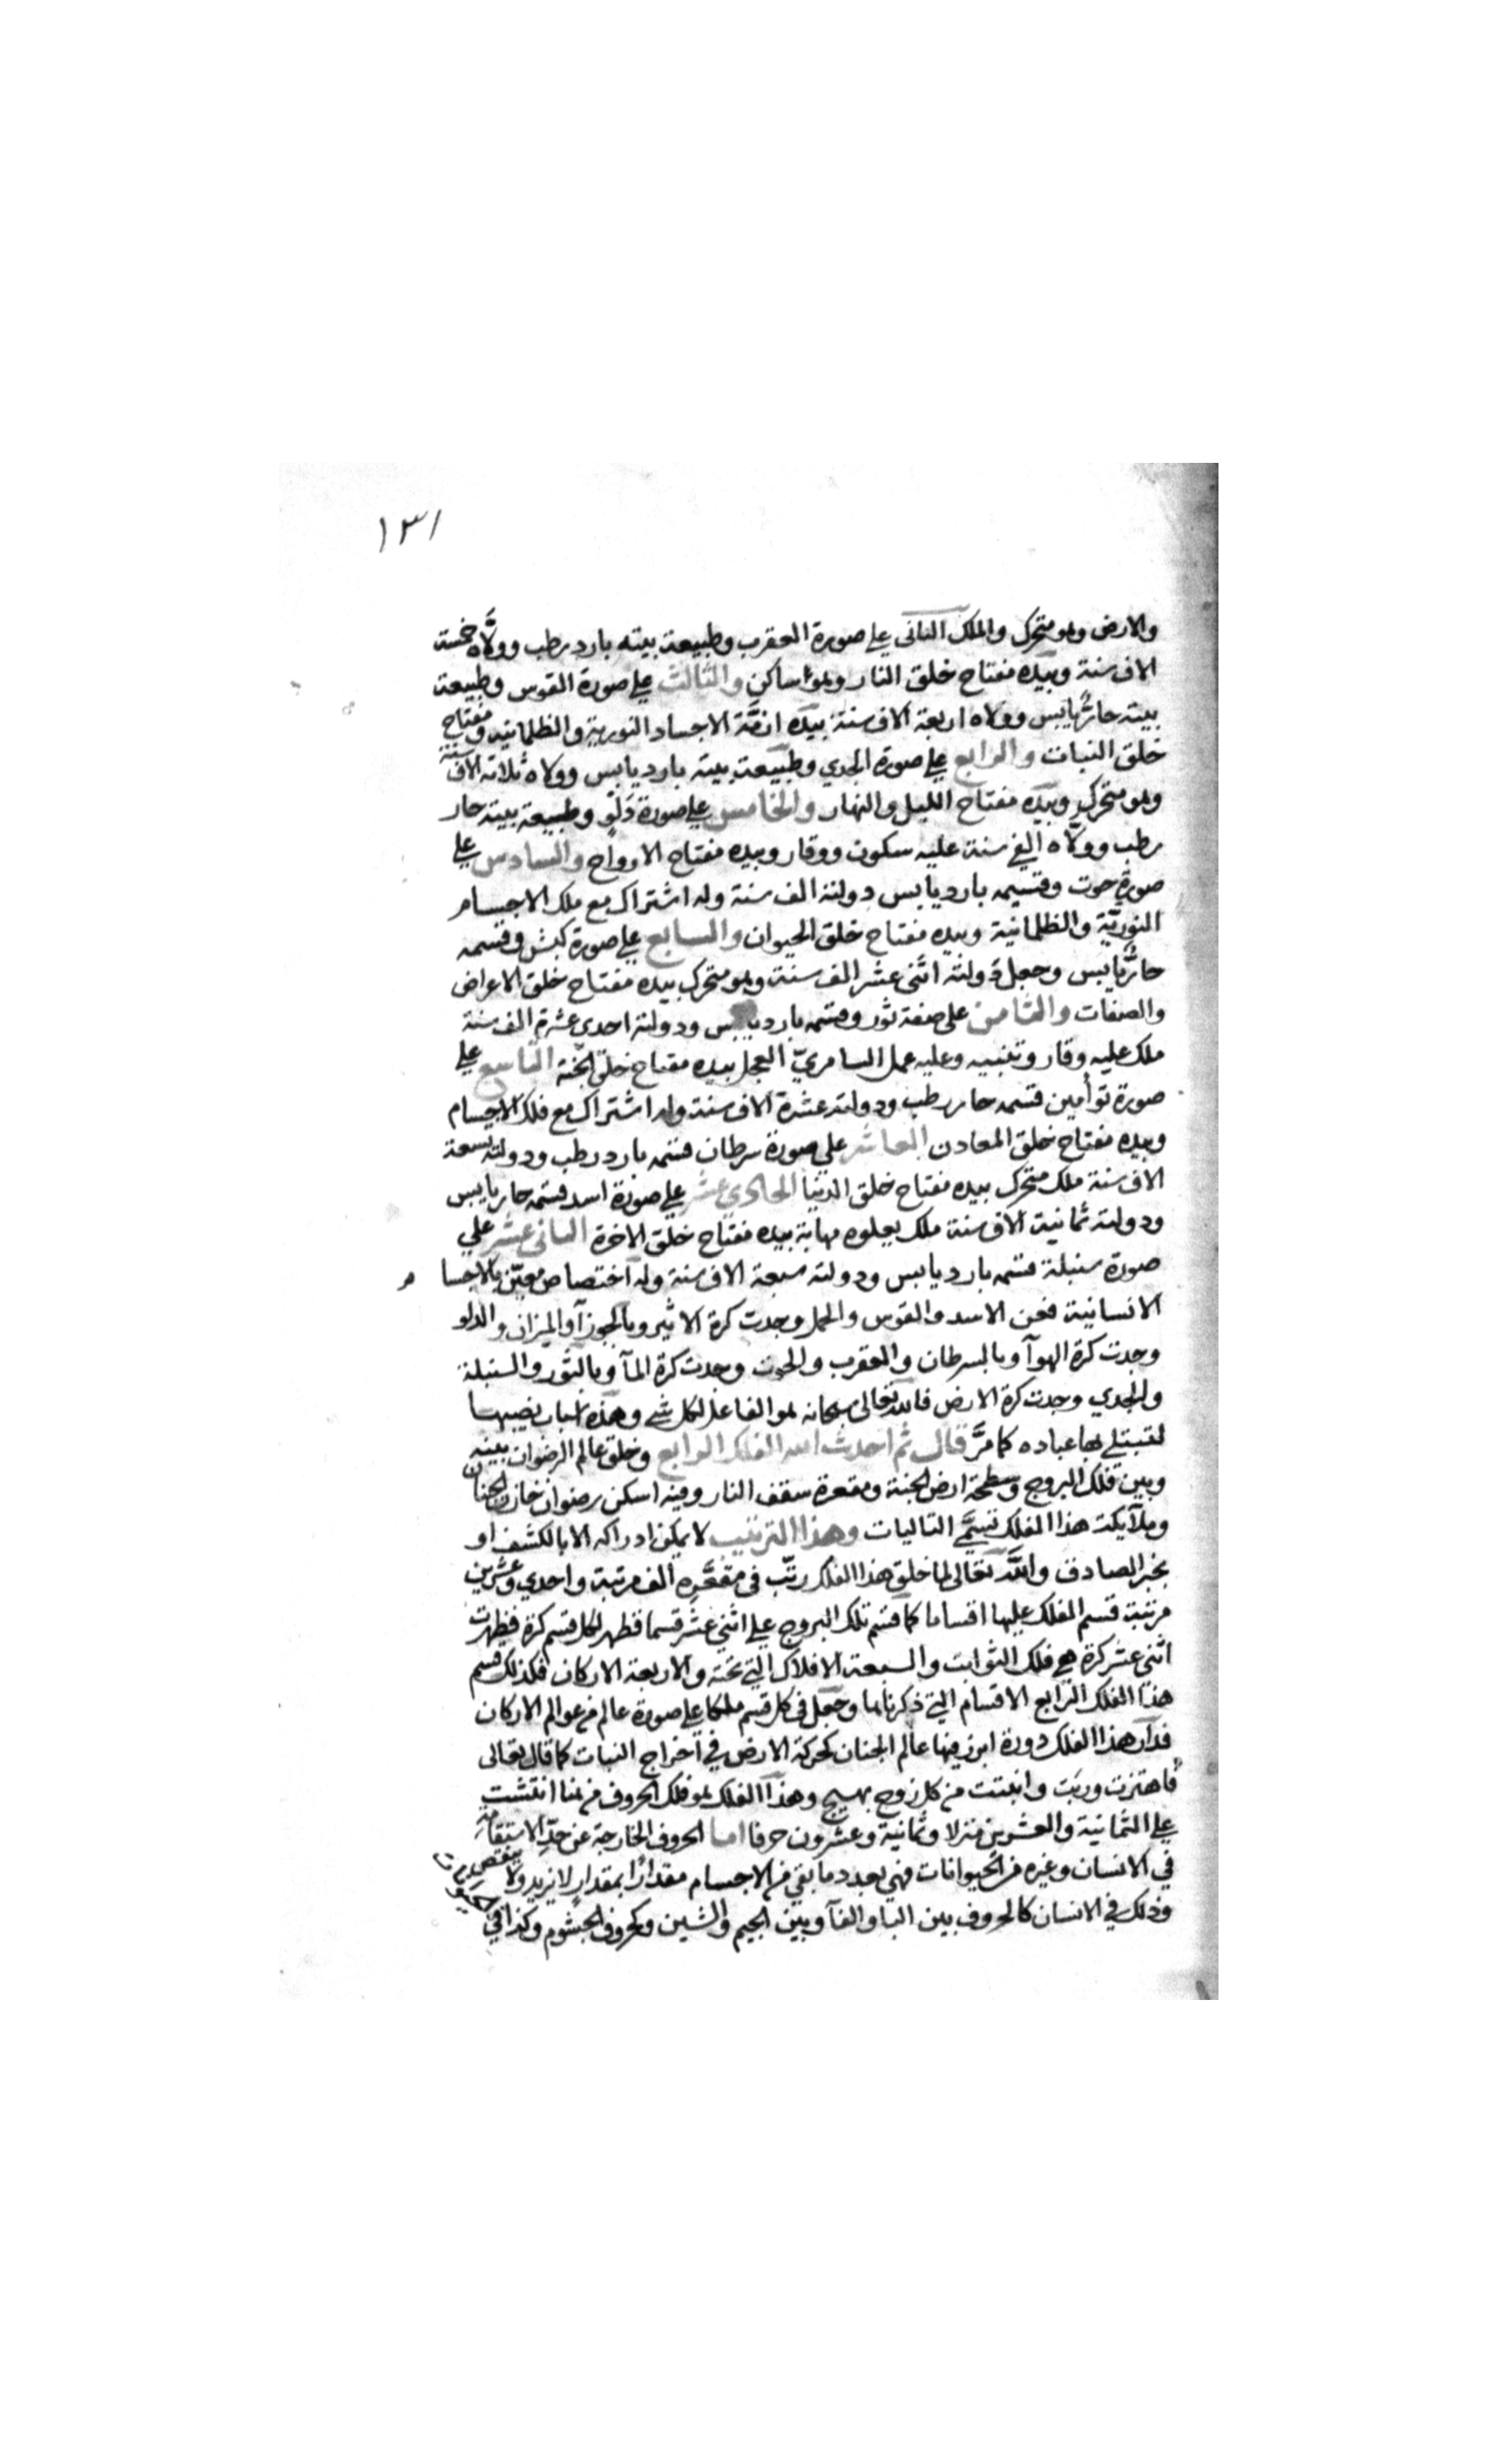 ١٣١
والارض وهو متحرك والملك الثاني علي صورة العقرب وطبيعة بيته بارد رطب وولَّاه خمسة
الاف سنة وبيده مفتاح خلق النار وهو ساكن والثالث علي صورة القوس وطبيعة
بيته حارّ يابس وولاه اربعة الاف سنة بيده ازمَّة الاجساد النورية والظلمانية ومفتاح
خلق النبات والرابع علي صورة الجدي وطبيعة بيته بارد يابس وولاه ثلاثة الاف سنة
وهو متحرك وبيده مفتاح الليل والنهار والخامس علي صورة دَلوٍ وطبيعة بيته حار
رطب وولّاه الفي سنة عليه سكون ووقار وبيده مفتاح الارواح والسادس علي
صورة حوت وقسيمه بارد يابس دولته الف سنة وله اشتراك مع ملك الاجسام
النوريّة والظلمانية وبيده مفتاح خلق الحيوان والسابع علي صورة كبش وقسمه
حارٌّ يابس وجعل دولته اثنى عشر الف سنة وهو متحرك بيده مفتاح خلق الاعراض
والصفات والثامن على صفة ثور وقسمه بارد يابس ودولته احدي عشرة الف سنة
ملك عليه وقار وعليه عمل السامريّ العجل بيده مفتاح خلق الجنة التاسع علي
صورة توأمين قسمه حار رطب ودولته عشرة الاف سنة وله اشتراك مع فلك الاجسام
وبيده مفتاح خلق المعادن العاشر على صورة سرطان قسمه بارد رطب ودولته تسعة
الاف سنة ملك متحرك بيده مفتاح خلق الدنيا الحادي عشر علي صورة اسد قسمه حار يابس
ودولته ثمانية الاف سنة ملك يعلوه مهابة بيده مفتاح خلق الاخرة الثانى عشر علي
صورة سنبلة قسمه بارد يابس ودولته سبعة الاف سنة وله اختصاص معيّن بالاجسام
الانسانية فعن الاسد والقوس والحمل وجدت كرة الاثير وبالجوزآ والميزان والدلو
وجدت كرة الهوآ وبالسرطان والعقرب والحوت وجدت كرة المآ وبالثور والسنبلة
والجدي وجدت كرة الارض فالله تعالى سبحانه هو الفاعل لكل شي وهذه اسباب نصبها
لتبتلي بها عباده كما مرَّ قال ثم احدث الله الفلك الرابع وخلق عالم الرضوان بينه
وبين فلك البروج وسطحه ارض الجنة ومقعره سقف النار وفيه اسكن رضوان خازن الجنان
وملآيكة هذا الفلك تسمَّى التاليات وهذا الترتيب لا يمكن ادراكه الا بالكشف او
بخبر الصادق والله تعالى لما خلق هذا الفلك رتّب في مقعَّره الف مرتبة واحدي وعشرين
مرتبة قسم الفلك عليها اقساما كما قسم تلك البروج علي اثنى عشر قسما فظهر لكل قسم كرة فظهرت
اثنى عشر كرة هي فلك الثوابت والسبعة الافلاك التي تحته والاربعة الاركان فكذلك قسم
هذا الفلك الرابع الاقسام التي ذكرناها وجعل في كل قسم ملكا علي صورة عالم من عوالم الاركان
فدار هذا الفلك دورة ابرز فيها عالم الجنان كحركة الارض في اخراج النبات كما قال تعالى
فاهتزت وربت وانبتت من كل زوج بهيج وهذا الفلك هو فلك الحروف من هنا انتشت
علي الثمانية والعشرين منزلا وثمانية وعشرون حرفا اما الحروف الخارجة عن حدّ الاستقامة
في الانسان وغيره من الحيوانات فهي بعدد ما بقي من الاجسام مقدارًا بمقدارٍ لا يزيد ولا ينقص
وذلك في الانسان كالحروف بين البا والفآ وبين الجيم والشين وكحروف الخيشوم وكذا في